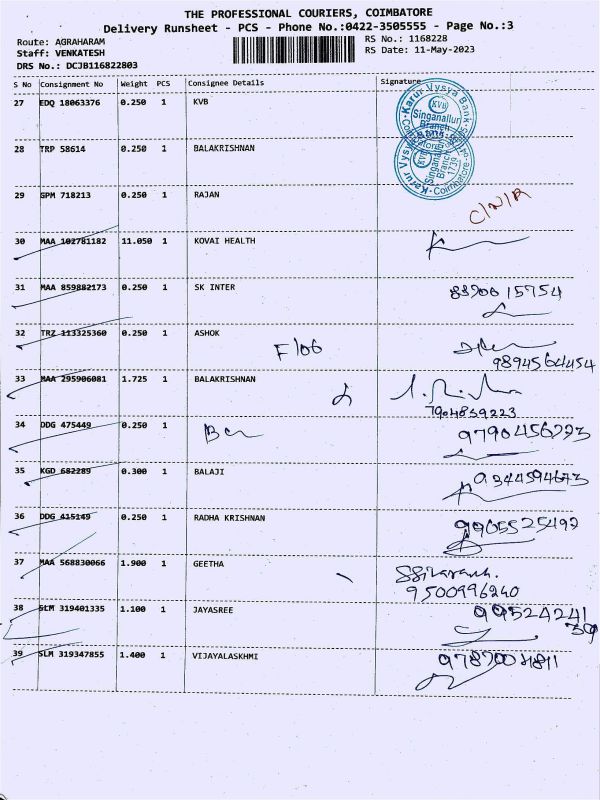 THE PROFESSIONAL COURIERS, COIMBATORE
Delivery Runsheet - PCS - Phone No.:0422-3505555 - Page No.:3
Route: AGRAHARAM RS No.: 1168228
Staff: VENKATESH RS Date: 11-May-2023
DRS No.: DCJB116822803
S No Consignment No Weight PCS Consignee Details Signature
27 EDQ 18063376 0.250 1 KVB
Karur Vysya Bank KVB Singanallur Branch
28 TRP 58614 0.250 1 BALAKRISHNAN
Karur Vysya Singanallur Branch 1739 Coimbatore
29 SPM 718213 0.250 1 RAJAN C/N/R
30 MAA 102781182 11.050 1 KOVAI HEALTH
31 MAA 859882173 0.250 1 SK INTER
15754
32 TRZ 113325360 0.250 1 ASHOK
F106 9894564454
33 MAA 295906081 1.725 1 BALAKRISHNAN
7904839223
34 DDG 475449 0.250 1
35 KGD 682289 0.300 1 BALAJI 9344594673
36 DDG 415149 0.250 1 RADHA KRISHNAN 9905525492
37 MAA 568830066 1.900 1 GEETHA
9500996240
38 SLM 319401335 1.100 1 JAYASREE 99524241
39
39 SLM 319347855 1.400 1 VIJAYALASKHMI